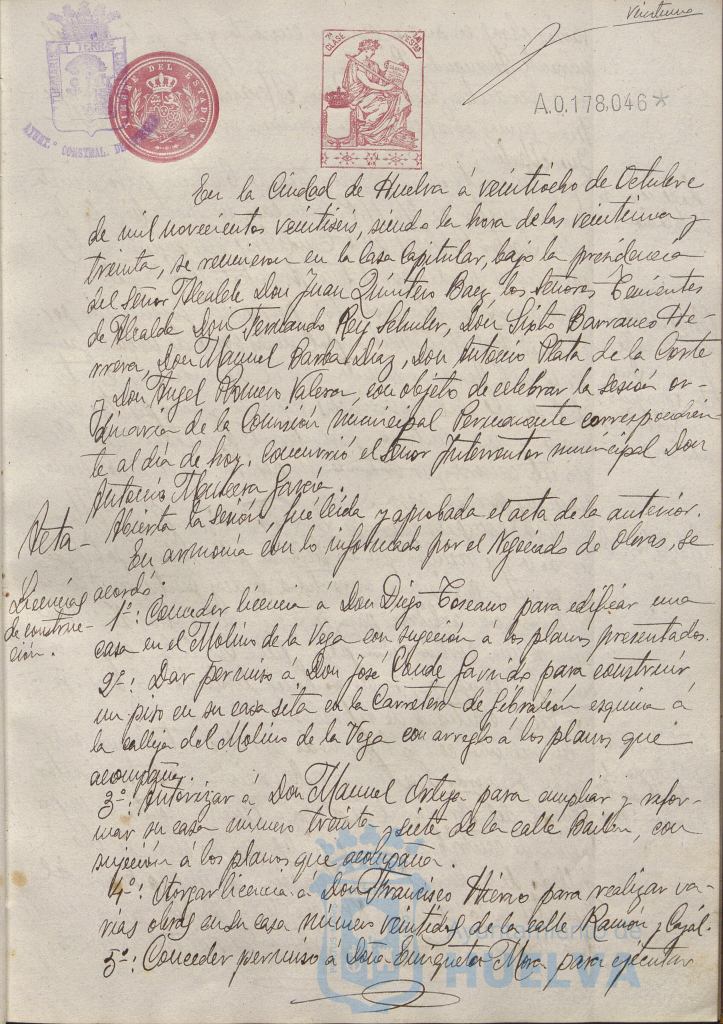 Veintiuno
7ª CLASE
TIMBRE DEL ESTADO
A.0.178,046*
En la Ciudad de Huelva á veintiocho de Octubre
de mil novecientos veintiseis, siendo la hora de las veintiuna y
treinta, se reunieron en la Casa Capitular, bajo la presidencia
del Señor Alcalde Don Juan Quintero Baez, los Señores Tenientes
de Alcalde Don Fernando Rey Don Sixto Barranco He-
rrera, Don Manuel Barba Díaz, Don Antonio Plata de la Corte
y Don Angel Romero Valera, con objeto de celebrar la sesión or-
dinaria de la Comisión municipal Permanente correspondien-
te al día de hoy. Concurrió el Señor Interventor municipal Don
Antonio García.
Acta - Abierta la sesión, fué leída y aprobada el acta de la anterior.
En armonía con lo informado por el Negociado de Obras, se
acordó:
Licencias
de construc-
ción.
1º: Conceder licencia á Don Diego Toscano para edificar una
casa en el Molino de la Vega con sugeción á los planos presentados.
2º: Dar permiso á Don José Conde Garrido para construir
un piso en su casa sita en la Carretera de Gibraleón esquina á
la calleja del Molino de la Vega con arreglo a los planos que
acompaña.
3º: Autorizar á Don Manuel Ortega para ampliar y refor-
mar su casa número treinta y siete de la calle Bailén, con
sujeción á los planos que acompaña.
4º: Otorgar licencia á Don Francisco Hierro para realizar va-
rias obras en su casa número veintidos de la calle Ramón y Cajal.
5º: Conceder permiso á Doña Enriqueta Mora para ejecutar
Ayuntamiento de
HUELVA